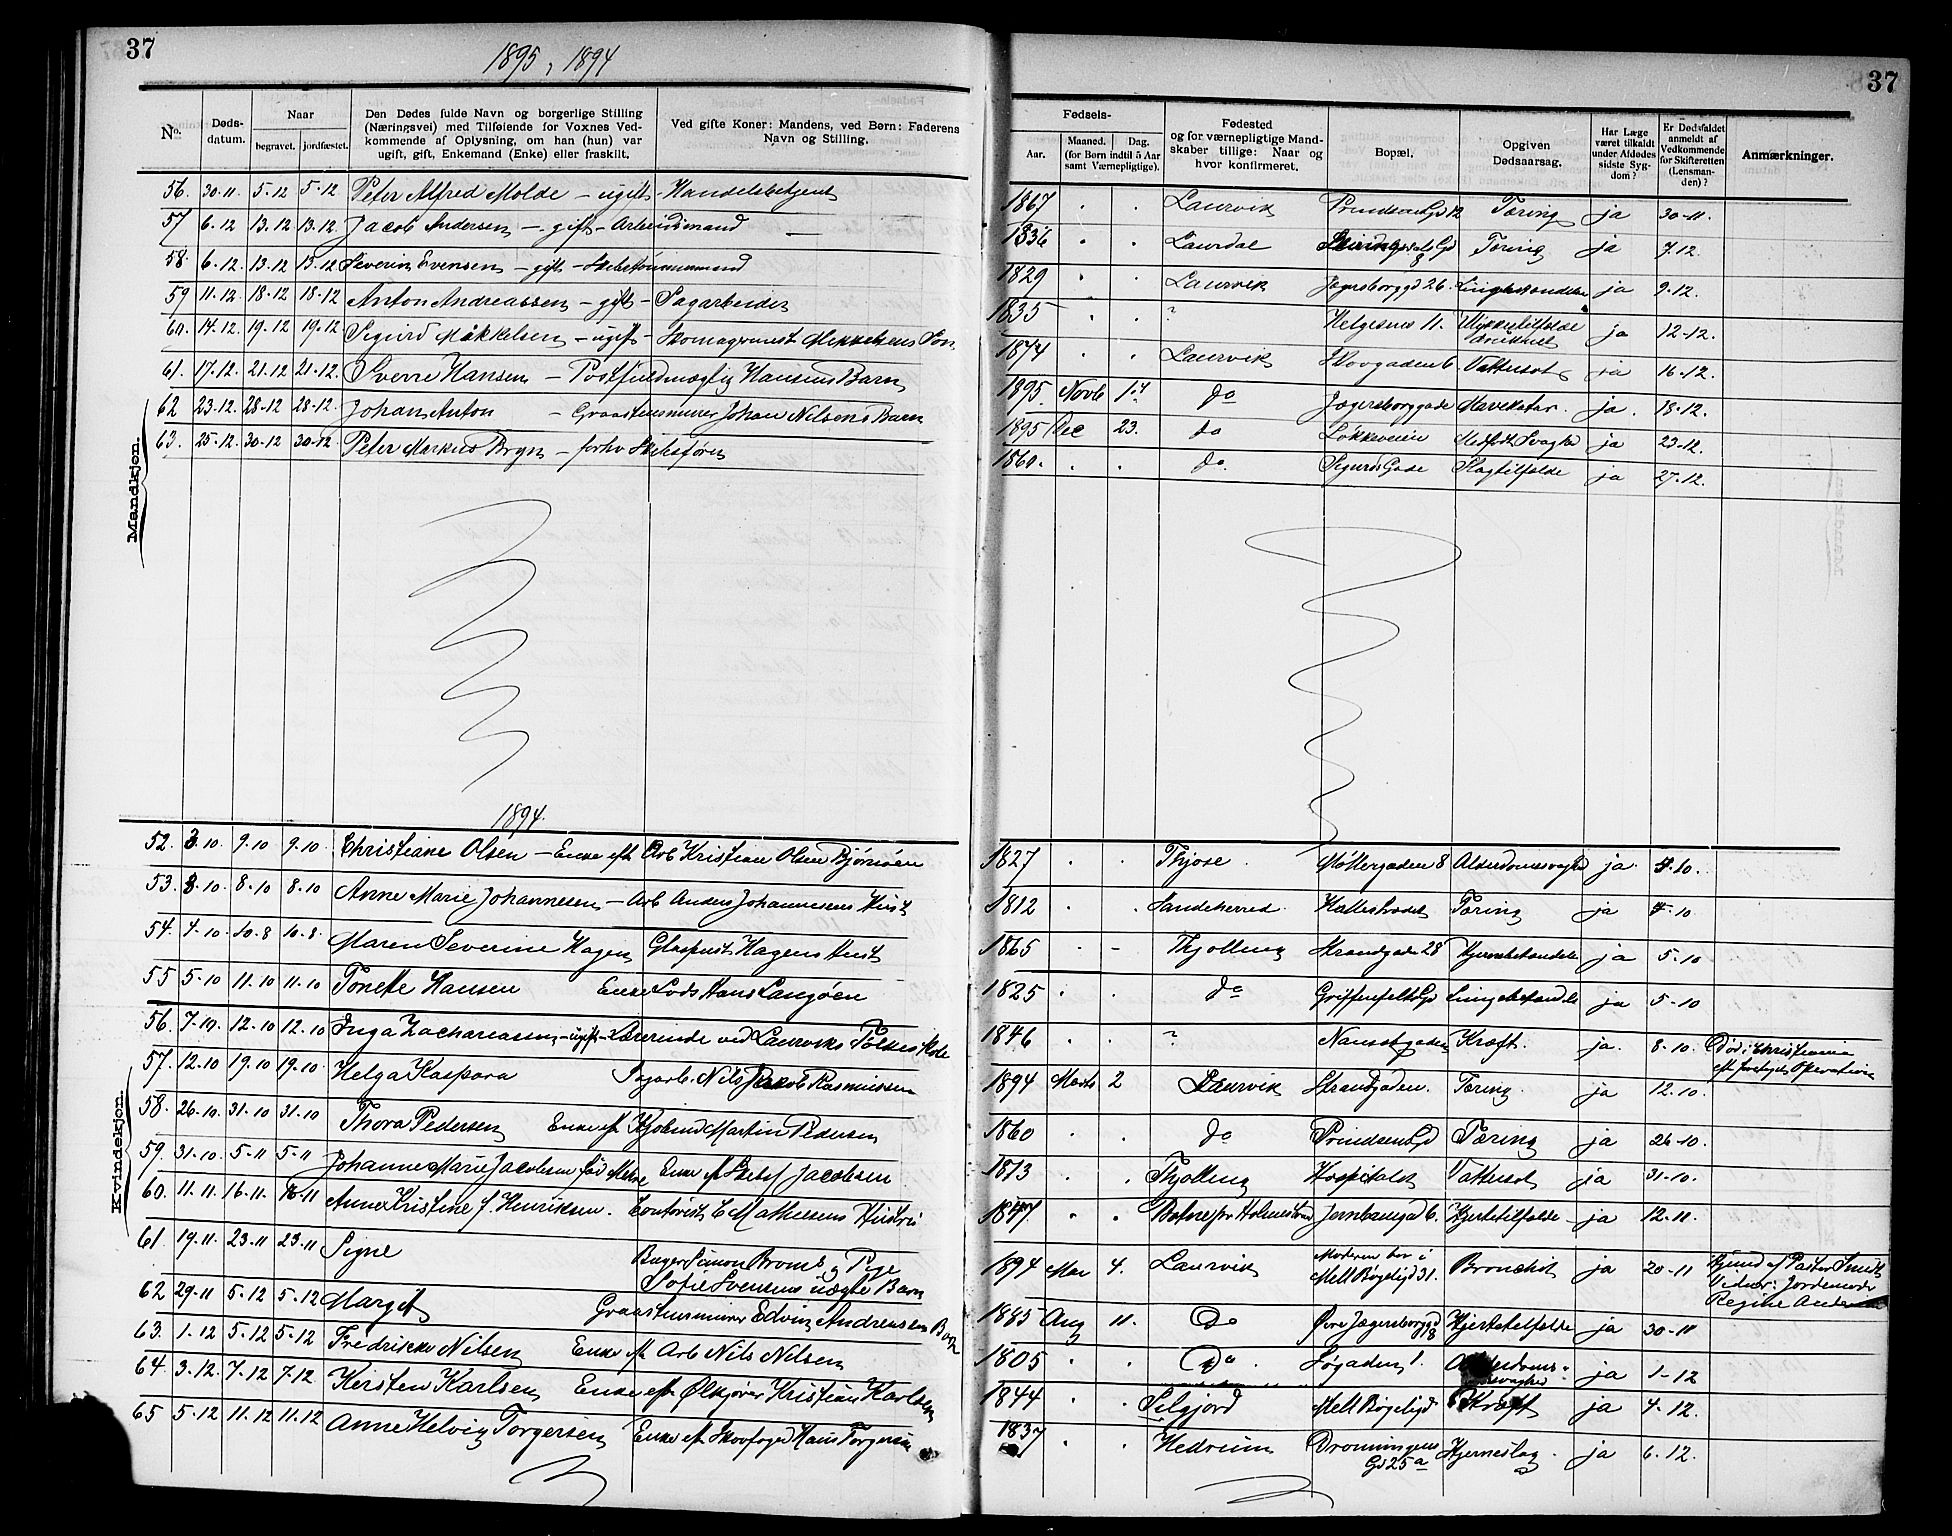 37
1895, 1894
No.
Døds-
datum.
Naar
begravet. jordfæstet.
Den Dødes fulde Navn og borgerlige Stilling
(Næringsvei) med Tilføiende for Voxnes Ved-
kommende af Oplysning, om han (hun) var
ugift, gift, Enkemand (Enke) eller fraskilt.
Ved gifte Koner: Mandens, ved Børn: Faderens
Navn og Stilling.
Mandkjøn.
56. 30-11 5-12 5-12 Peter Alfred Molde - ugift - Handelsbetjent
57 6-12 13.12 13.12. Jacob Andersen - gift - Arbeidsmand
58. 6-12. 13-12 13-12 Severin Evensen - gift - Skibstømmermand
59 11-12. 18-12 18-12 Anton Andreassen - gift - Sagarbeider
60. 14-12. 19-12 19-12 Sigurd - ugift - Skomagermest Mekkelsens Søn.
61. 17-12. 21-12 21-12. Sverre Hansen - Postfuldmægtig Hansens Barn
62 23-12. 28-12 28-12. Johan Anton - Graastensmurer Johan Nilsens Barn
63. 25-12. 30-12 30-12. Peter Markus Bryn - forhv Skibsfører
1894.
Kvindekjøn.
52. 3-10. 9-10 9-10 Christiane Olsen - Enke eft Arb Kristian Olsen Bjørnøen
53. 3-10. 8-10 8-10 Anne Marie Johannesen - Arb Anders Johannesens Hust
54. 4-10 10-8 10-8. Maren Severine Hagen Glaspust Hagens Hust
55 5-10 11-10 11-10 Tonette Hansen Enke Lods Hans Langøen
56. 7-10. 12-10 12-10 Inga Zachariassen - ugift - Lærerinde ved Laurviks Folkeskole
57. 12-10 19-10 19-10. Helga Kaspara Sagarb. Nils Jakob Rasmussen
58. 26-10. 31-10 31-10 Thora Pedersen Enke eft Martin Pedersen
59. 31-10. 5-11 5-11 Johanne Marie Jacobsen Enke eft Jacobsen
60. 11-11. 16-11. 16-11 Anne Kristine f. Henriksen. Contorist C Mathiesens Hustru
61. 19-11. 23-11 23-11 Signe Simon og Pige
Sofie Svensens uægte Barn
62 29-11 5-12 5-12 Margit Graastensmurer Edvin Andreasens Barn
63. 1-12 5-12 5-12 Fredrikke Nilsen Enke eft Arb Nils Nilsen
64. 3-12. 7-12 7-12 Kirsten Karlsen Enke eft Ølkjører Kristian Karlsen
65 5-12 11-12 11-12 Anne Helvig Torgersen Enke eft Skovfoged Hans Torgersen
37
Fødsels-
Aar. Maaned. Dag.
(for Børn indtil 5 Aar
samt Værnepligtige).
Fødested
og for værnepligtige Mand-
skaber tillige: Naar og
hvor konfirmeret.
Bopæl.
Opgiven
Dødsaarsag.
Har Læge
været tilkaldt
under Afdødes
sidste Syg-
dom?
Er Dødsfaldet
anmeldt af
Vedkommende
for Skifteretten
(Lensman-
den)?
Anmærkninger.
1867 Laurvik Prindsensgd 12 Tæring ja 30-11.
1836 Laurdal 8 Tæring ja 7-12.
1829 Laurvik Jægersborggd 26. ja 9-12.
1835 ? Helgesens 11. Ulykkestilfælde
druknet ja 12-12.
1874 Laurvik Skovgaden 6. Vattersot ja 16-12.
1895. Novb 14 do Jægersborggade Mavekatar. ja. 18-12.
1895 Dec 23. do Løkkeveien Medfødt Svaghed ja 23-12.
1860. do. Sigurds Gade Slagtilfælde ja 27-12.
1827 Thjose Møllergaden 8 Alderdomssvaghed ja. 4-10.
1812 Sandeherred Tæring ja 4-10
1865 - Thjolling Strandgade 28 Hjernebetændelse ja 5-10
1825 do Griffenfelts Gd Lungebetændelse ja 5-10
1846 ? Nansetgaden Kræft. ja. 8-10. Død i Christiania
eft foretagen Operation
1894 Marts 2 Laurvik Strandgaden. Tæring. ja 12-10.
1860 do Prindsens Gd Tæring ja 26-10.
1813 Thjolling Hospitalet Vattersot ja 31-10.
1847. Botne pr Holmestrand Jernbanegd 6. Hjertetilfælde - ja 12-11.
1894 Mai 4. Laurvik Moderen bor i
Mell Bøgeligd 31. Bronchit ja 20-11 af Pastor
Vidner: Jordemoder
Regine
1885 Aug 11. do Øvre Jægersborggd
8 Hjertetilfælde ja 30-11
1805 do. Søgaden 1. ja 1-12
1844 Siljord Mell Bøgeligd Kræft ja 4-12.
1837 Hedrum Dronningens
Gd 25a Hjerneslag. ja 6-12.